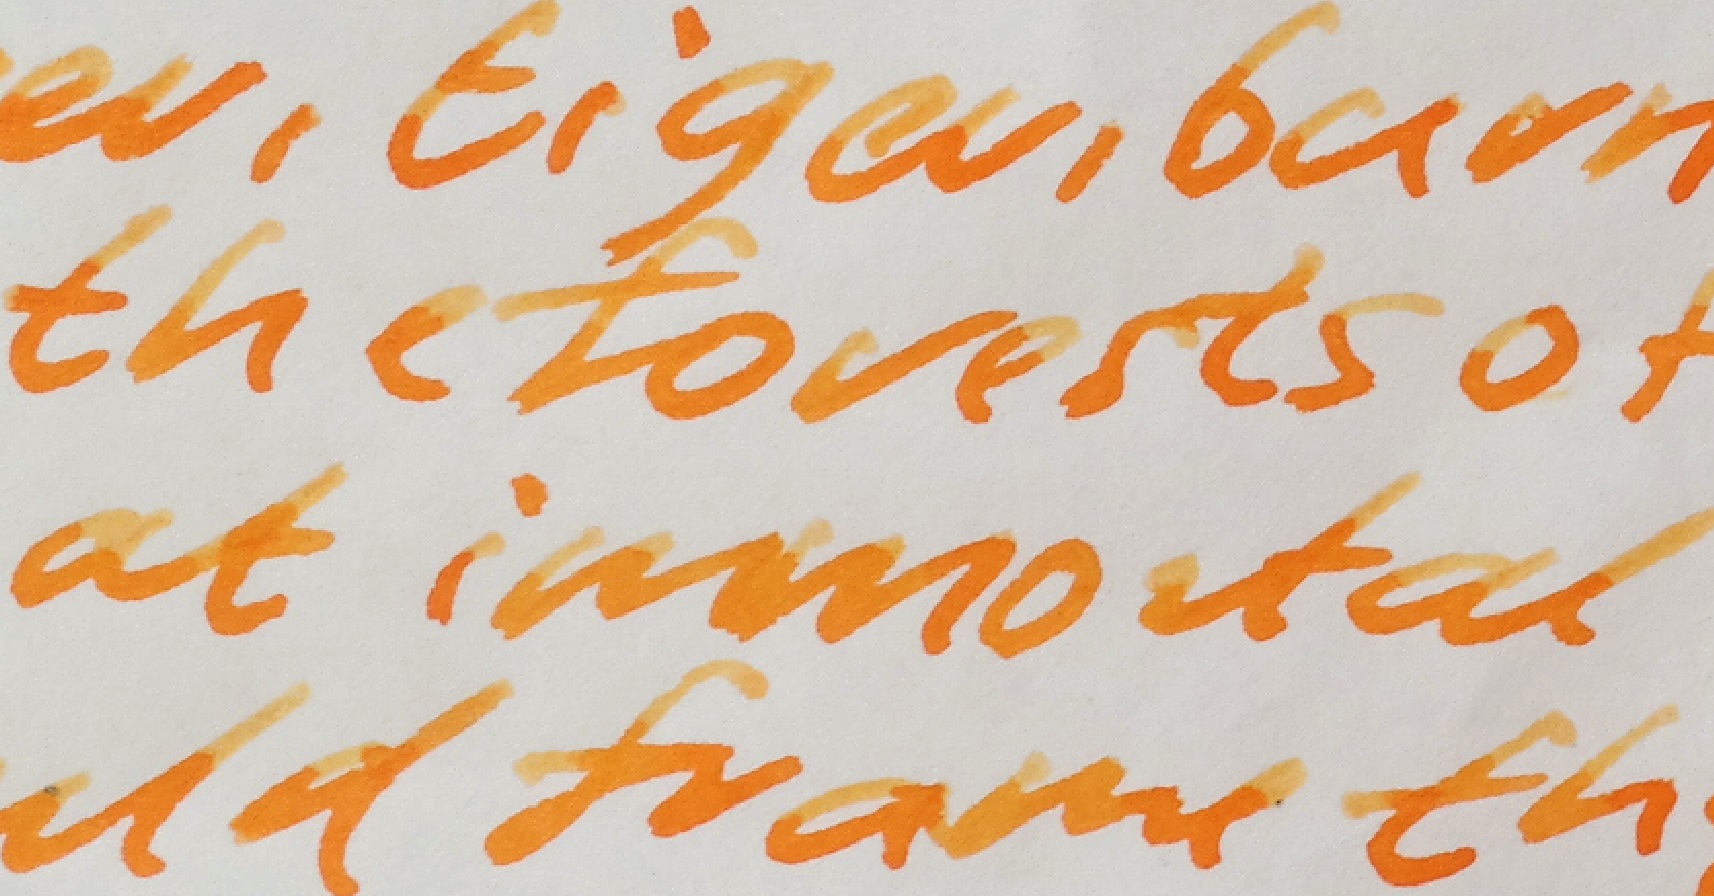 er, tiger, burn
the forests of
at immortal
uld frame thy